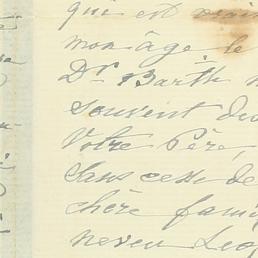 qui est vrai
mon âge le
Dr Barth
souvent du
Votre Père,
sans cesse de
chère fami
neveu Leop